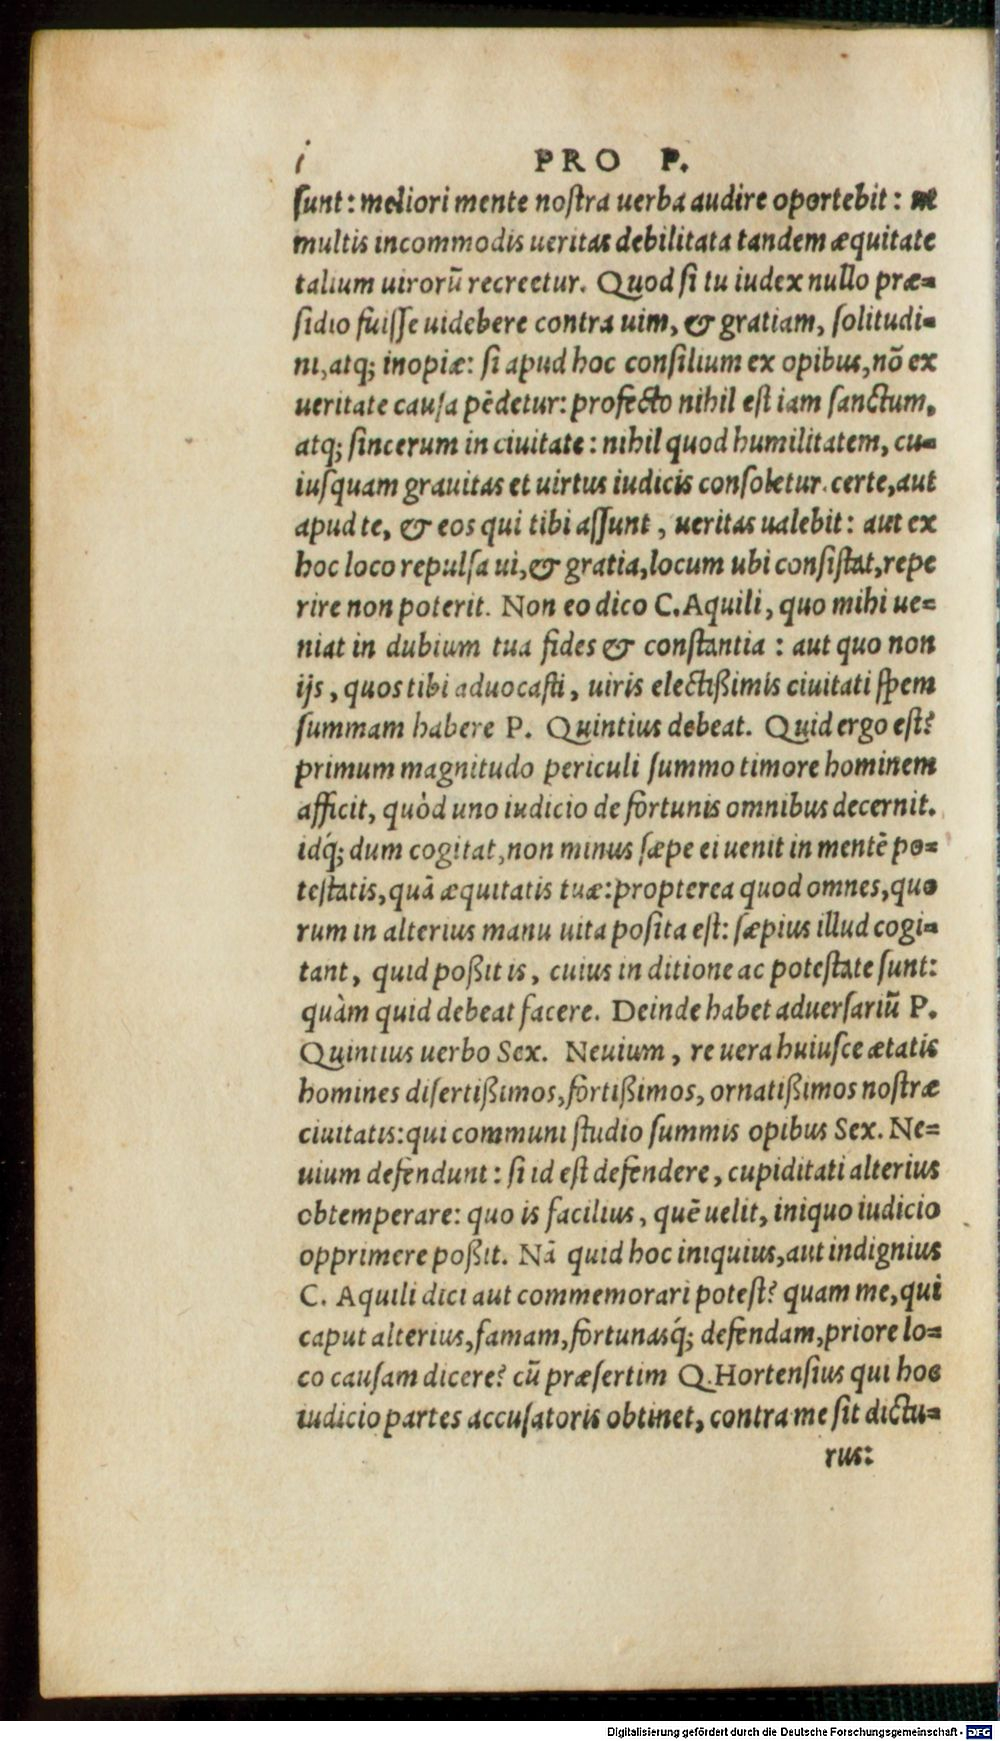 i PRO P.
sunt: meliori mente nostra uerba audire oportebit: ut
multis incommodis ueritas debilitata tandem æquitate
talium uirorũ recreetur. Quod si tu iudex nullo præ=
sidio fuisse uidebere contra uim, & gratiam, solitudi=
ni, atq; inopiæ: si apud hoc consilium ex opibus, nõ ex
ueritate causa pẽdetur: profecto nihil est iam sanctum,
atq; sincerum in ciuitate: nihil quod humilitatem, cu=
iusquam grauitas et uirtus iudicis consoletur. certe, aut
apud te, & eos qui tibi assunt, ueritas ualebit: aut ex
hoc loco repulsa ui, & gratia, locum ubi consistat, repe
rire non poterit. Non eo dico C. Aquili, quo mihi ue=
niat in dubium tua fides & constantia: aut quo non
ijs, quos tibi aduocasti, uiris electißimis ciuitati spem
summam habere P. Quintius debeat. Quid ergo est?
primum magnitudo periculi summo timore hominem
afficit, quòd uno iudicio de fortunis omnibus decernit.
idq́; dum cogitat, non minus sæpe ei uenit in mentẽ po=
testatis, quã æquitatis tuæ: propterea quod omnes, quo
rum in alterius manu uita posita est: sæpius illud cogi=
tant, quid poßit is, cuius in ditione ac potestate sunt:
quàm quid debeat facere. Deinde habet aduersariũ P.
Quintius uerbo Sex. Neuium, re uera huiusce ætatis
homines disertißimos, fortißimos, ornatißimos nostræ
ciuitatis: qui communi studio summis opibus Sex. Ne=
uium defendunt: si id est defendere, cupiditati alterius
obtemperare: quo is facilius, quẽ uelit, iniquo iudicio
opprimere poßit. Nã quid hoc iniquius, aut indignius
C. Aquili dici aut commemorari potest? quam me, qui
caput alterius, famam, fortunasq́; defendam, priore lo=
co causam dicere? cũ præsertim Q. Hortensius qui hoc
iudicio partes accusatoris obtinet, contra me sit dictu=
rus:
Digitalisierung gefördert durch die Deutsche Forschungsgemeinschaft - DFG